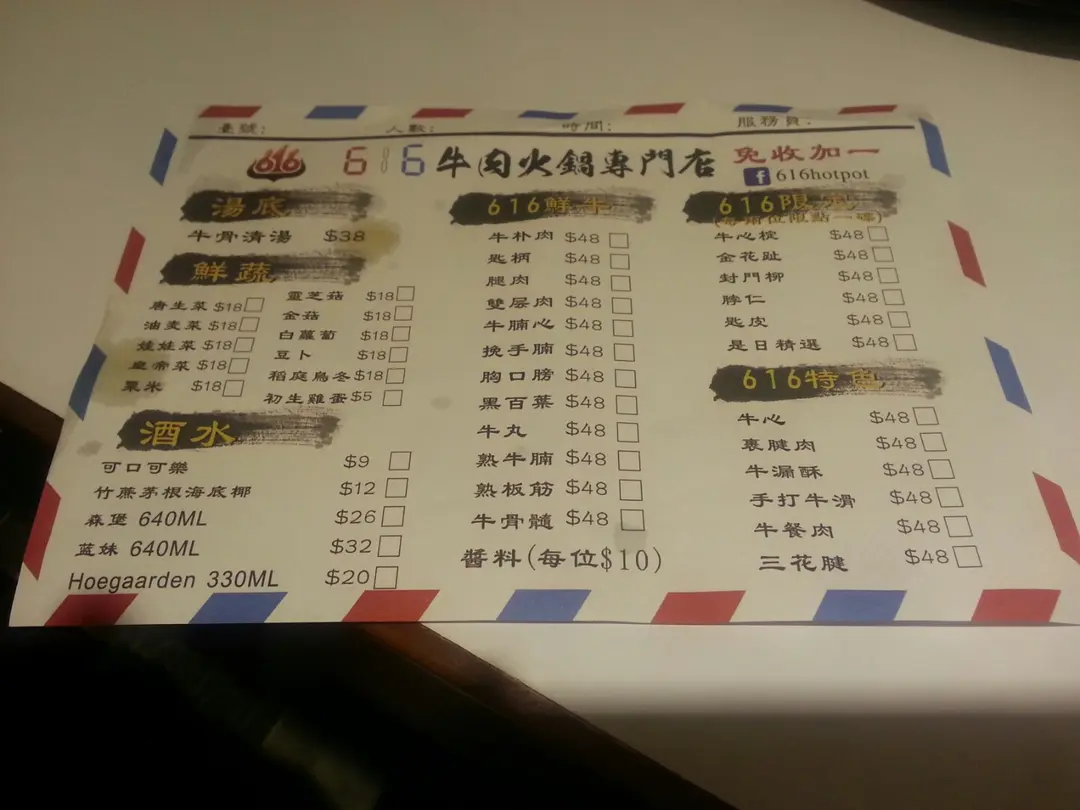 臺號: 人數: 時間: 服務員:
616 616 牛肉火鍋專門店 免收加一
f 616hotpot
湯底
牛骨清湯 $38
鮮蔬
唐生菜 $18
油麦菜 $18
娃娃菜 $18
皇帝菜 $18
粟米 $18
靈芝菇 $18
金菇 $18
白蘿蔔 $18
豆卜 $18
稻庭烏冬 $18
初生雞蛋 $5
酒水
可口可樂 $9
竹蔗茅根海底椰 $12
森堡 640ML $26
蓝妹 640ML $32
Hoegaarden 330ML $20
616鮮牛
牛朴肉 $48
匙柄 $48
腿肉 $48
雙层肉 $48
牛腩心 $48
挽手腩 $48
胸口膀 $48
黑百葉 $48
牛丸 $48
熟牛腩 $48
熟板筋 $48
牛骨髓 $48
醬料(每位$10)
616限定
(每兩位限點一碟)
牛心椗 $48
金花趾 $48
封門柳 $48
脖仁 $48
匙皮 $48
是日精選 $48
616特
牛心 $48
裹腱肉 $48
牛漏酥 $48
手打牛滑 $48
牛餐肉 $48
三花腱 $48